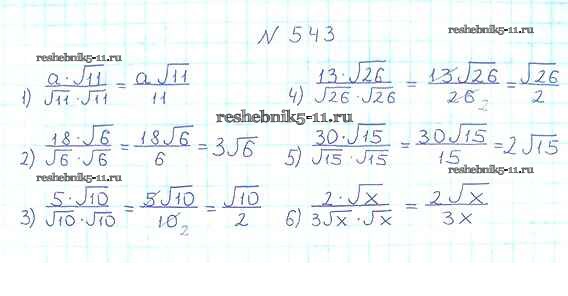 N 543
reshebnik5-11.ru
1) a·√11/√11·√11 = a√11/11
4) 13·√26/√26·√26 = 13√26/26 2 = √26/2
reshebnik5-11.ru
2) 18·√6/√6·√6 = 18√6/6 = 3√6
5) 30·√15/√15·√15 = 30√15/15 = 2√15
reshebnik5-11.ru
reshebnik5-11.ru
3) 5·√10/√10·√10 = 5√10/10 2 = √10/2
6) 2·√x/3√x·√x = 2√x/3x